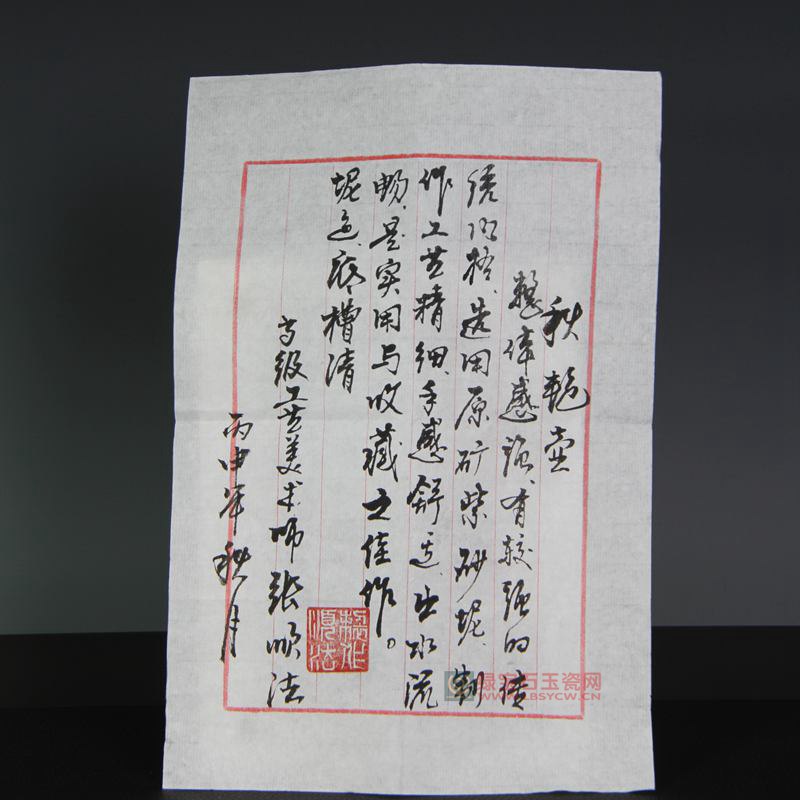 秋艳壶
整体感强、有较强的传
统风格、选用原矿紫砂坭、制
作工艺精细、手感舒适、出水流
畅、是实用与收藏之佳作。
坭色、底槽清
高级工艺美术师张顺法
丙申年秋月
绿宝石玉瓷网
WWW.LBSYCW.COM